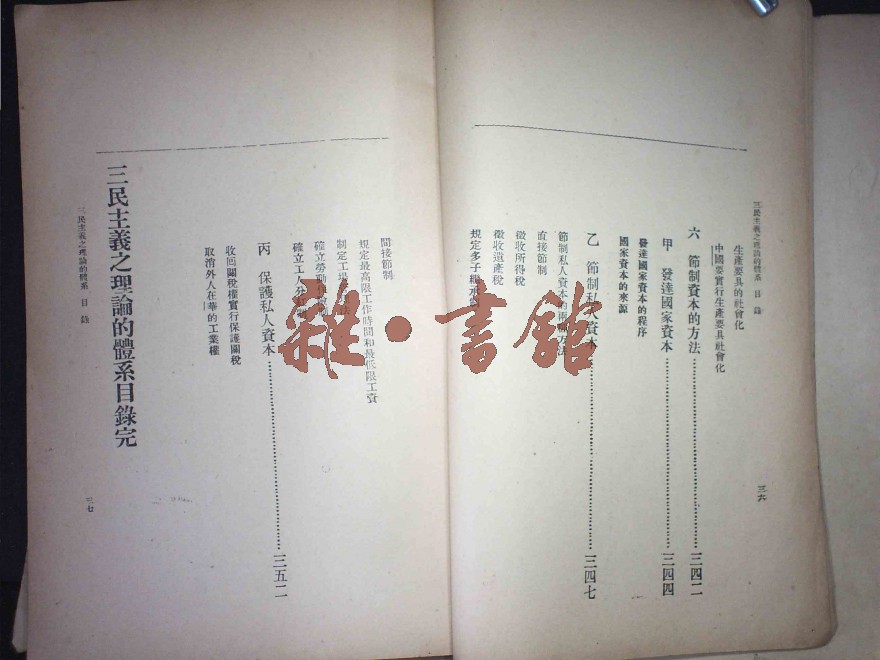 三民主義之理論的體系 目錄
三六
生產要具的社會化
中國要實行生產要具社會化
六 節制資本的方法……三四二
甲 發達國家資本……三四四
發達國家資本的程序
國家資本的來源
乙 節制私人資本……三四七
節制私人資本的兩種方法
直接節制
徵收所得稅
徵收遺產稅
規定多子
間接節制
規定最高限工作時間和最低限工資
制定工場
確立勞動
確立工人分
丙 保護私人資本……三五二
收回關稅權實行保護關稅
取消外人在華的工業權
三民主義之理論的體系目錄完
三民主義之理論的體系 目錄
三七
雜·書館